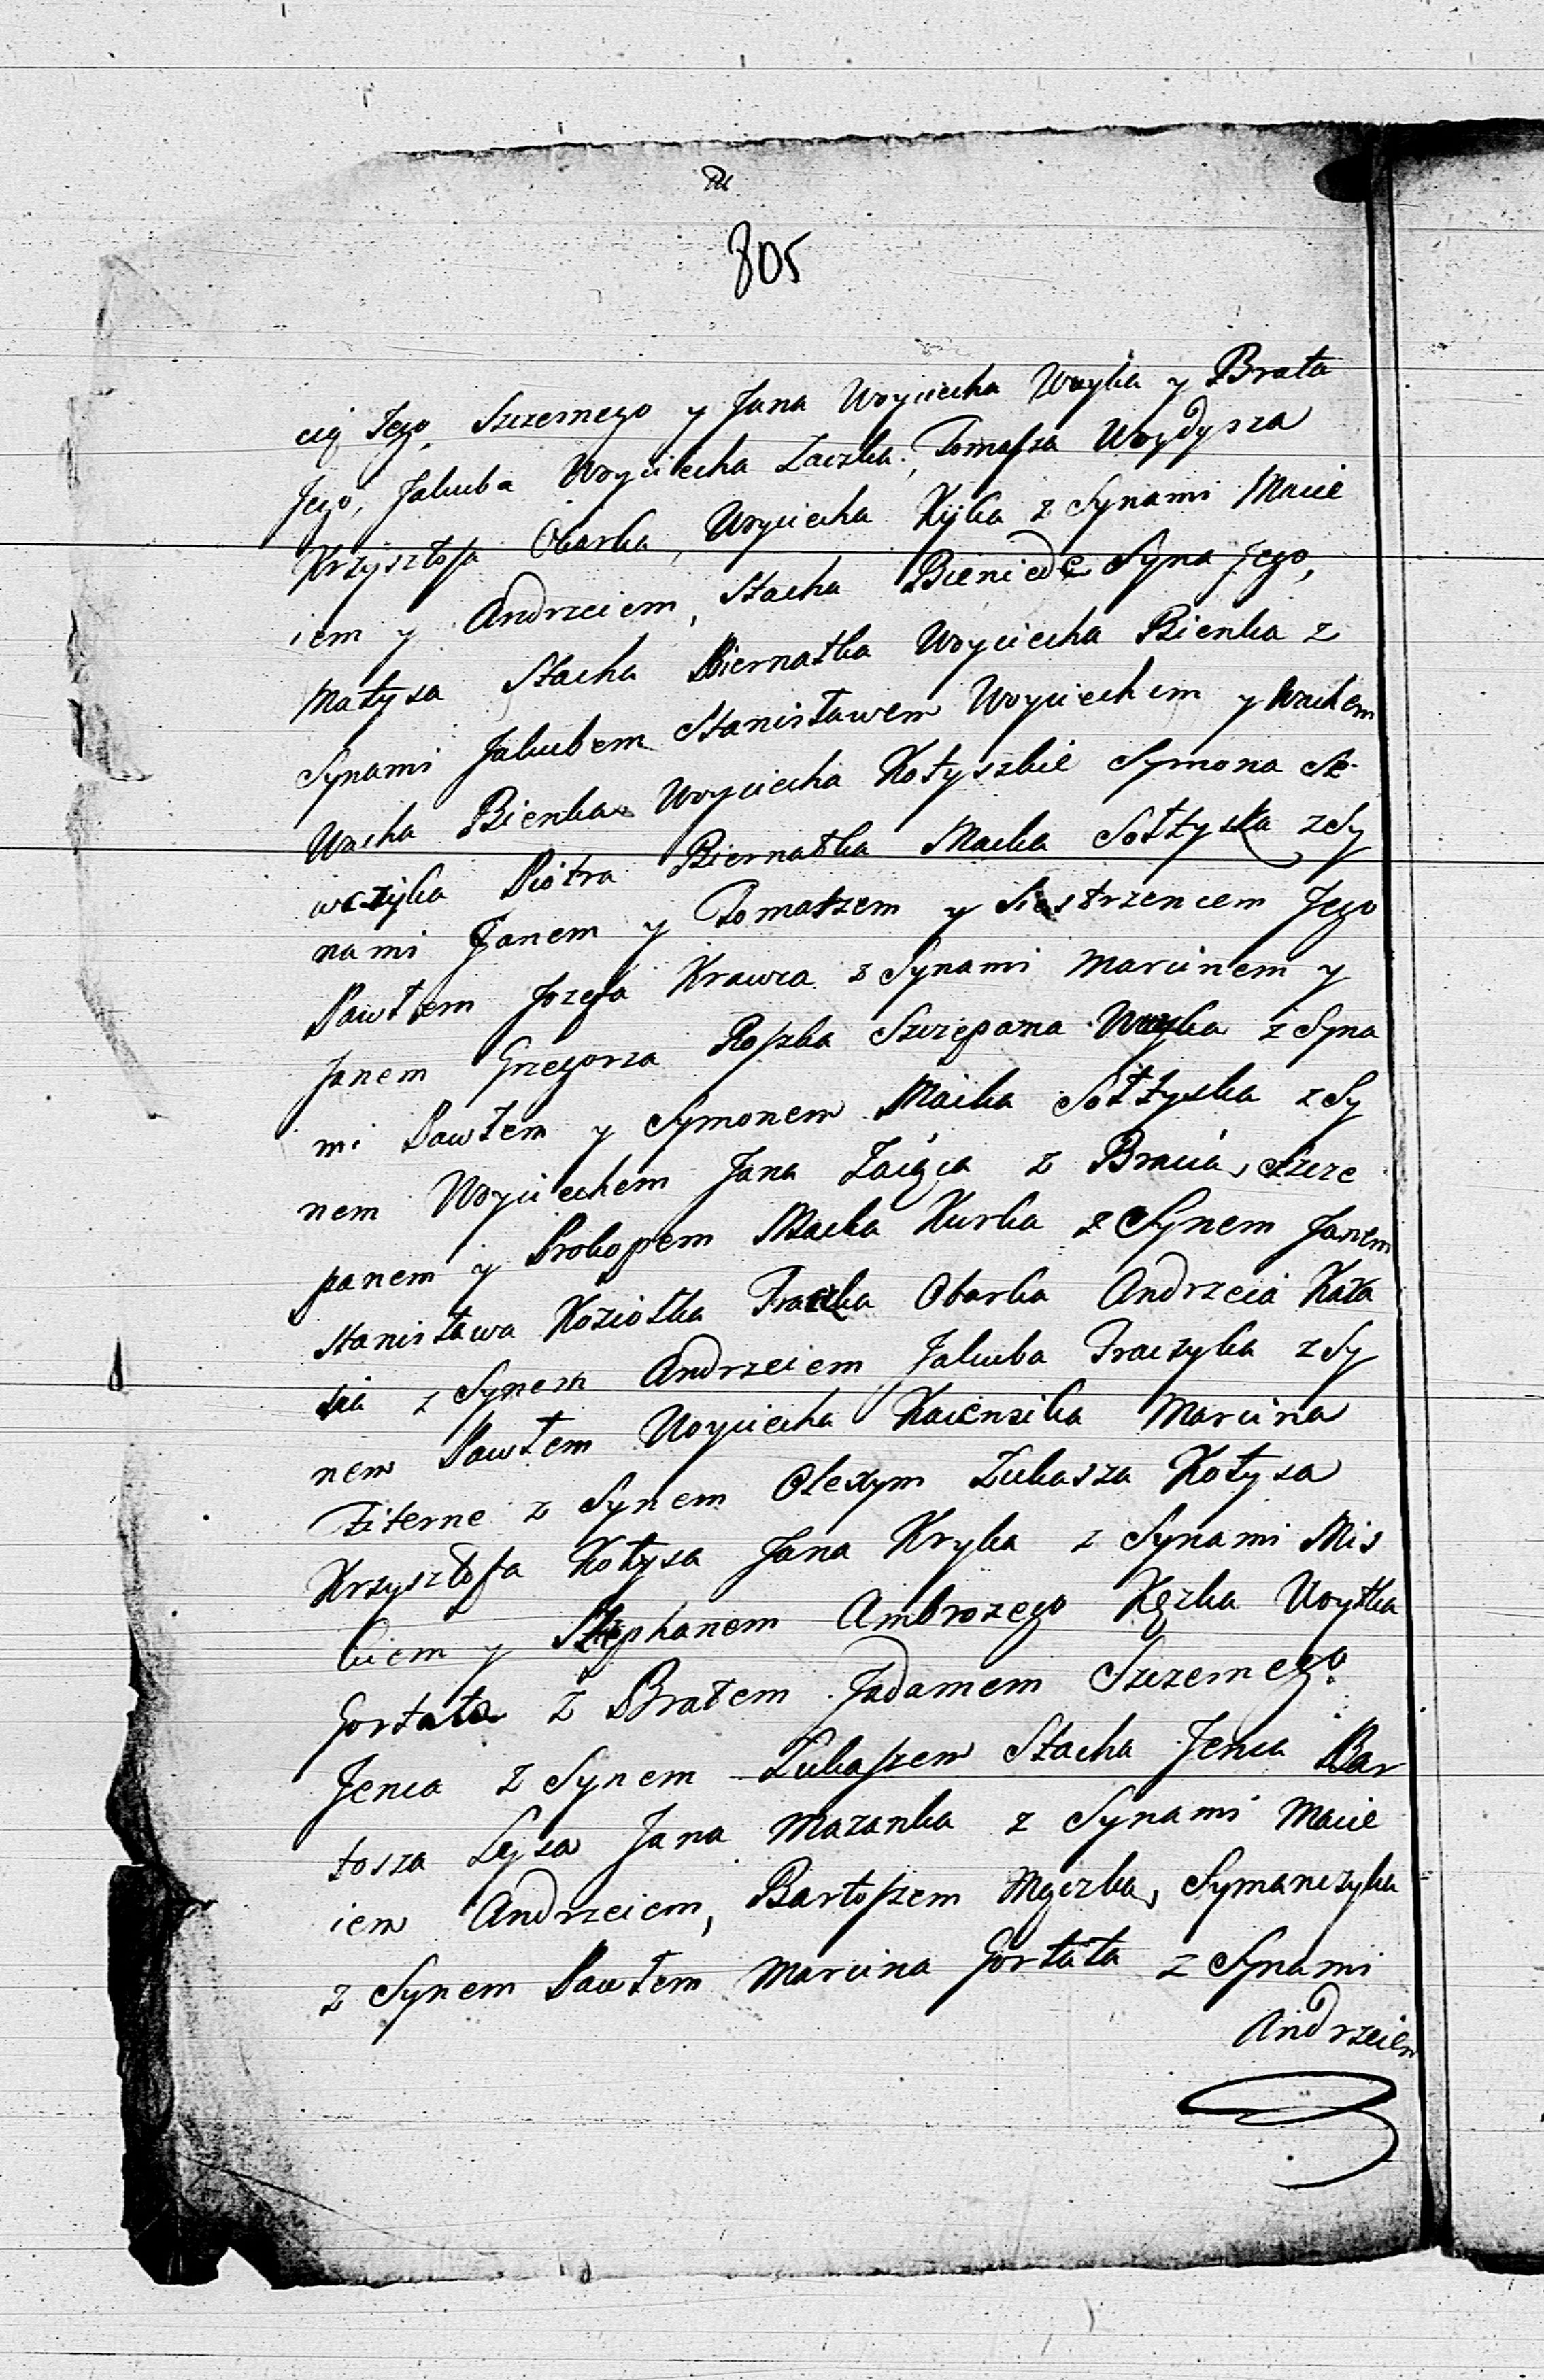 805
cię Jego, Szczernego y Jana Woyciecha Woyka y Brata
Jego, Jakuba Woyciecha Laczka, Tomasza Woydysza
Krzysztofa Obarka, Woyciecha Kijka z Synami Macie
iem y Andrzeiem, Stacha Bieniede Syna Jego,
Matysa Stacha Biernatka Woyciecha Bienka z
Synami Jakubem Stanisławem Woyciechem y Wachem
Wacha Bienka Woyciecha Kotyszkie Symona Se
wczyka Piotra Biernatka Macka Sołtyska z Sy
nami Janem y Tomaszem y Siestrzencem Jego
Pawłem Jozefa Krawca z Synami Marcinem y
Janem Grzegorza Roszka Szczepana Woyka z Syna
mi Pawłem y Symonem Macka Sołtyska z Sy
nem Woyciechem Jana Zaiąca z Bracią, Szcze
panem y Prokopem Macka Kurka z Synem Janem
Stanisława Koziołka Fraczka Obarka Andrzeia Kata
sia z Synem Andrzeiem Jakuba Fraczyka z Sy
nem Pawłem Woyciecha Marcina
z Synem Olexym Łukasza Kotysa
Krzysztofa Kotysa Jana Kryka z Synami Mis
kiem y Stephanem Ambrozego Kęzka Woytka
Gortata z Bratem Jadamem Szczernego
Jenca z Synem Łukaszem Stacha Jenca Bar
tosza Lysa Jana Mazanka z Synami Macie
iem Andrzeiem, Bartoszem Męczka, Symanczyka
z Synem Pawłem Marcina Gortata z Synami
Andrzeiem